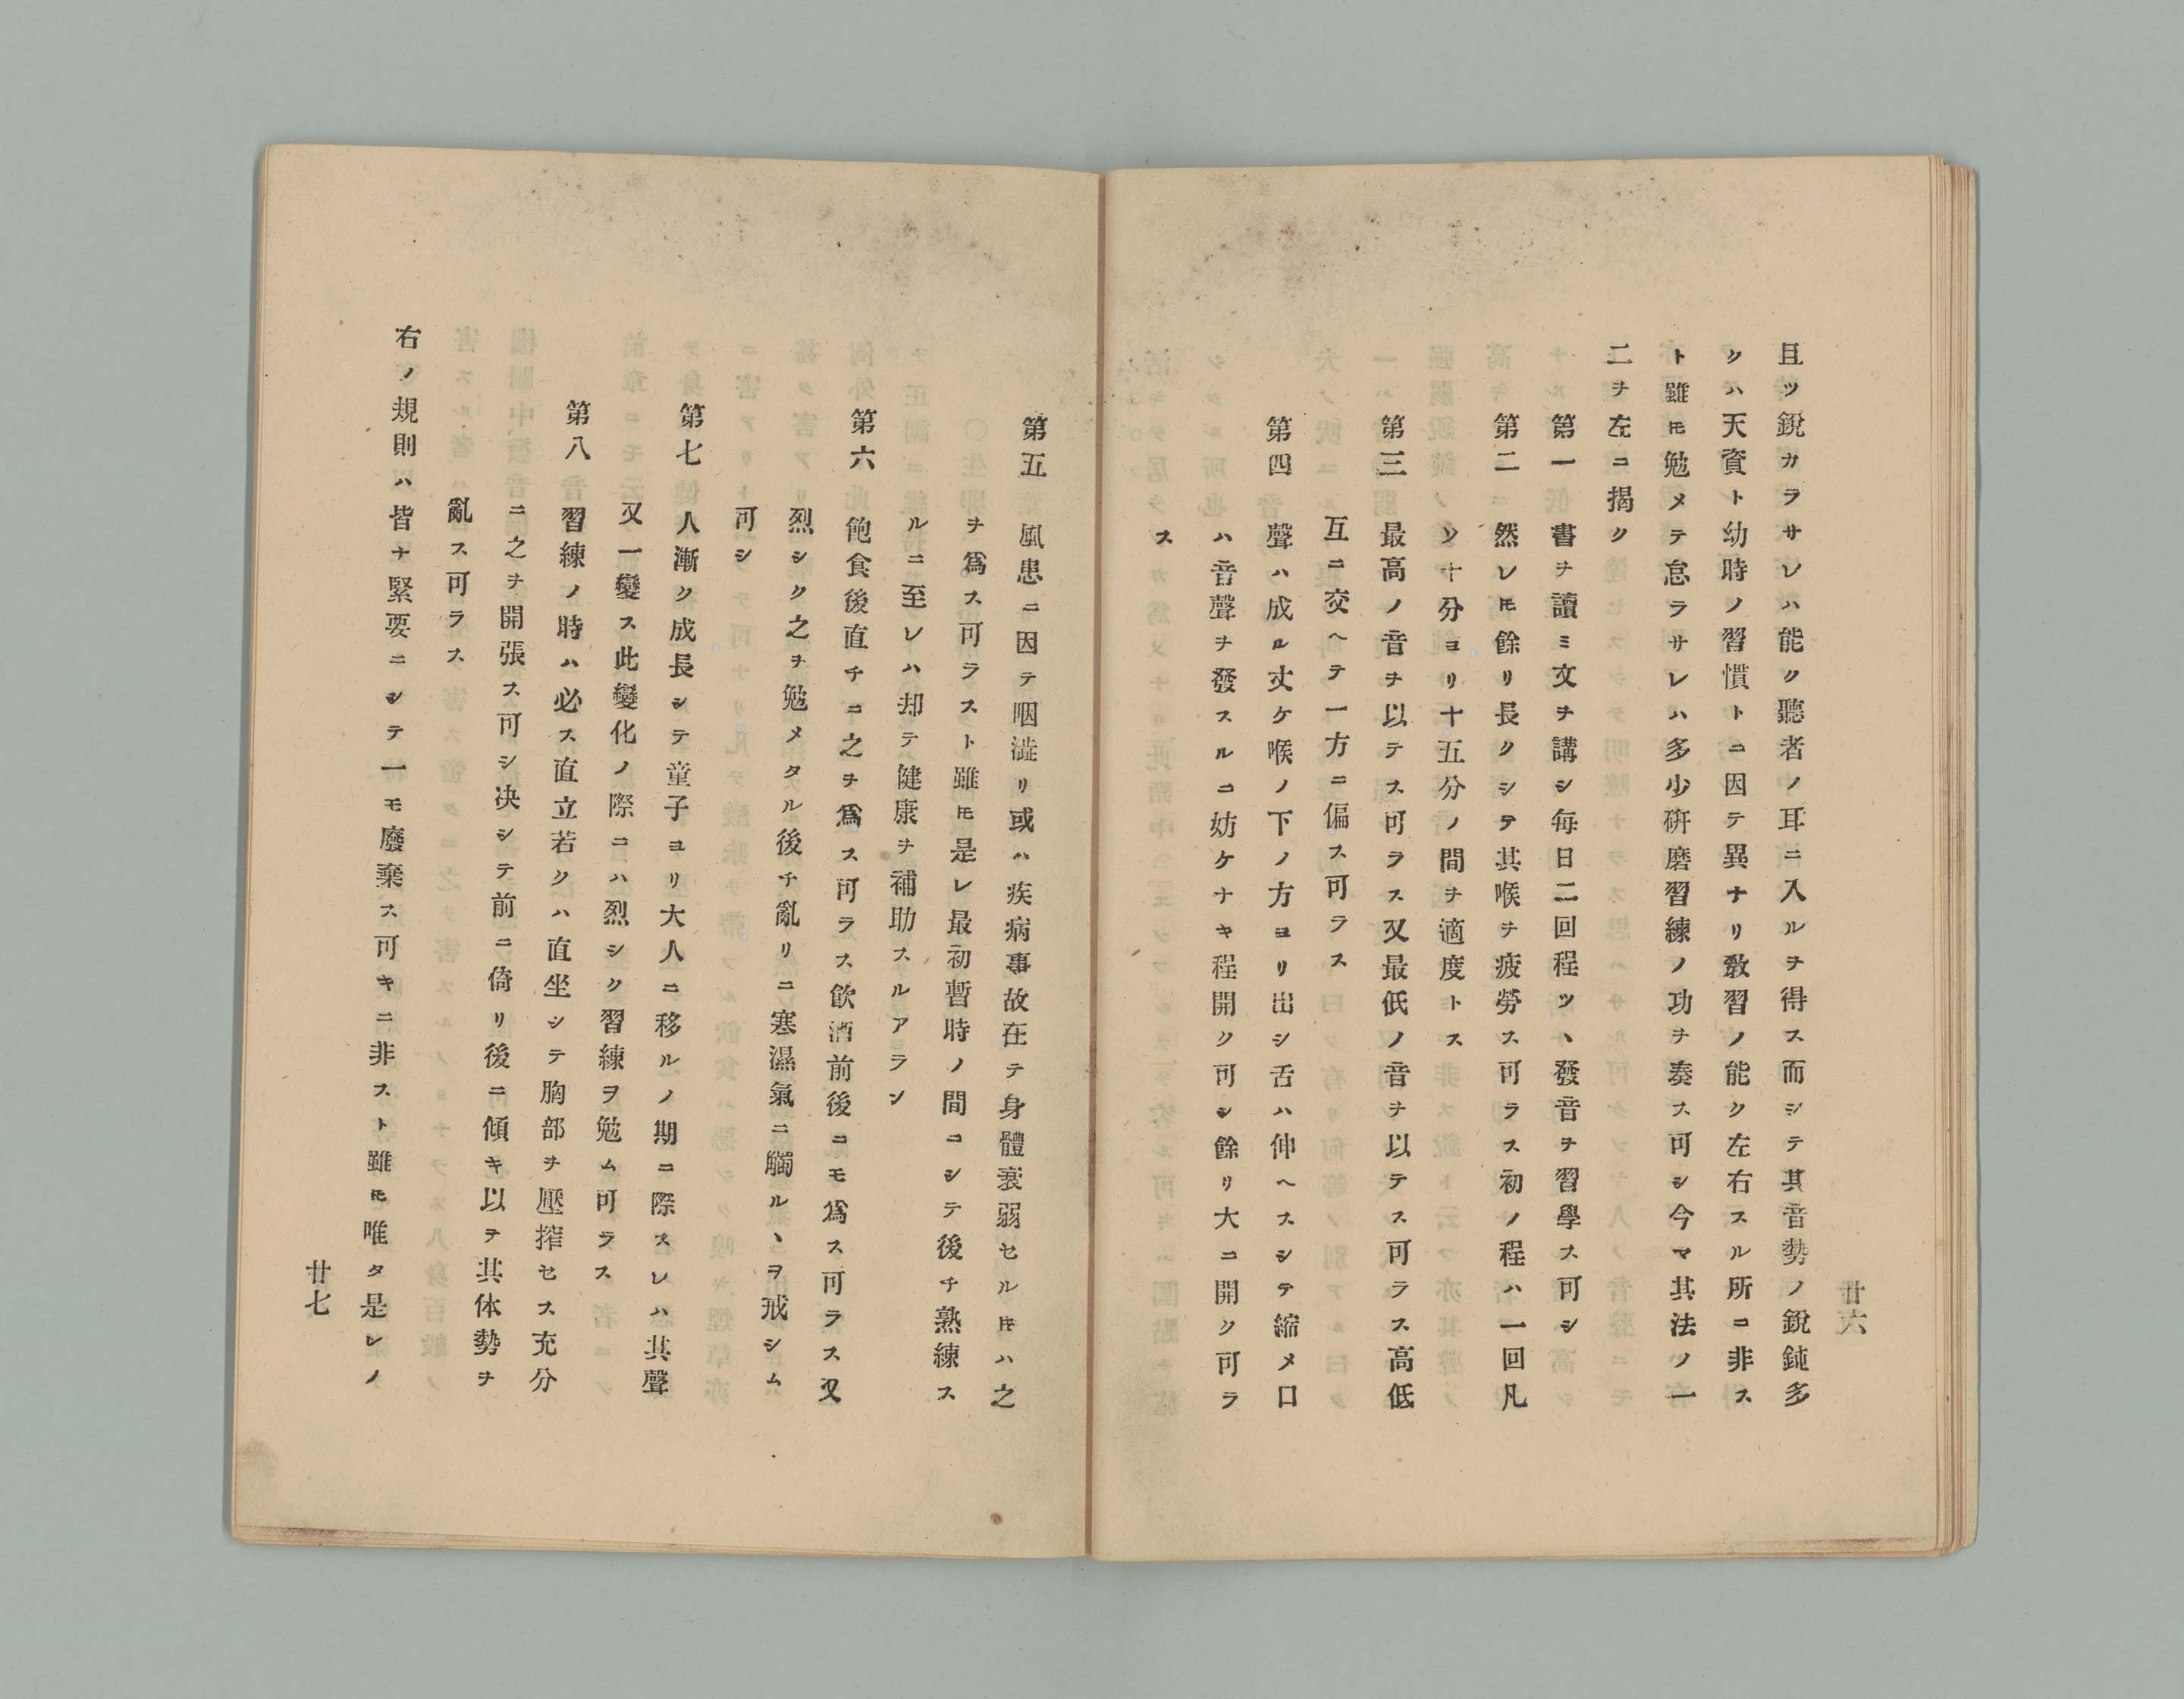 廿六
且ツ鋭カラサレハ能ク聽者ノ耳ニ入ルヲ得ス而シテ其音勢ノ鋭鈍多
クハ天資ト幼時ノ習慣トニ因テ異ナリ敎習ノ能ク左右スル所ニ非ス
ト雖𪜈勉メテ怠ラサレハ多少硏磨習練ノ功ヲ奏ス可シ今マ其法ノ一
二ヲ左ニ揭ク
第一 書ヲ讀ミ文ヲ講シ毎日二回程ツヽ發音ヲ習學ス可シ
第二 然レ𪜈餘リ長クシテ其喉ヲ疲勞ス可ラス初ノ程ハ一回凡
ソ十分ヨリ十五分ノ間ヲ適度トス
第三 最高ノ音ヲ以テス可ラス又最低ノ音ヲ以テス可ラス高低
互ニ交ヘテ一方ニ偏ス可ラス
第四 聲ハ成ル丈ケ喉ノ下ノ方ヨリ出シ舌ハ伸ヘスシテ縮メ口
ハ音聲ヲ發スルニ妨ケナキ程開ク可シ餘リ大ニ開ク可ラ
ス
第五 風患ニ因テ咽澁リ或ハ疾病事故在テ身體衰弱セル𪜈ハ之
ヲ爲ス可ラスト雖𪜈是レ最初暫時ノ間ニシテ後チ熟練ス
ルニ至レハ却テ健康ヲ補助スルアラン
第六 飽食後直チニ之ヲ爲ス可ラス飮酒前後ニモ爲ス可ラス又
烈シク之ヲ勉メタル後チ亂リニ寒濕氣ニ觸ルヽヲ戒シム
可シ
第七 人漸ク成長シテ童子ヨリ大人ニ移ルノ期ニ際スレハ其聲
又一變ス此變化ノ際ニハ烈シク習練ヲ勉ム可ラス
第八 習練ノ時ハ必ス直立若クハ直坐シテ胸部ヲ壓搾セス充分
ニ之ヲ開張ス可シ决シテ前ニ倚リ後ニ傾キ以テ其体勢ヲ
亂ス可ラス
右ノ規則ハ皆ナ緊要ニシテ一モ廢棄ス可キニ非スト雖𪜈唯タ是レノ
廿七